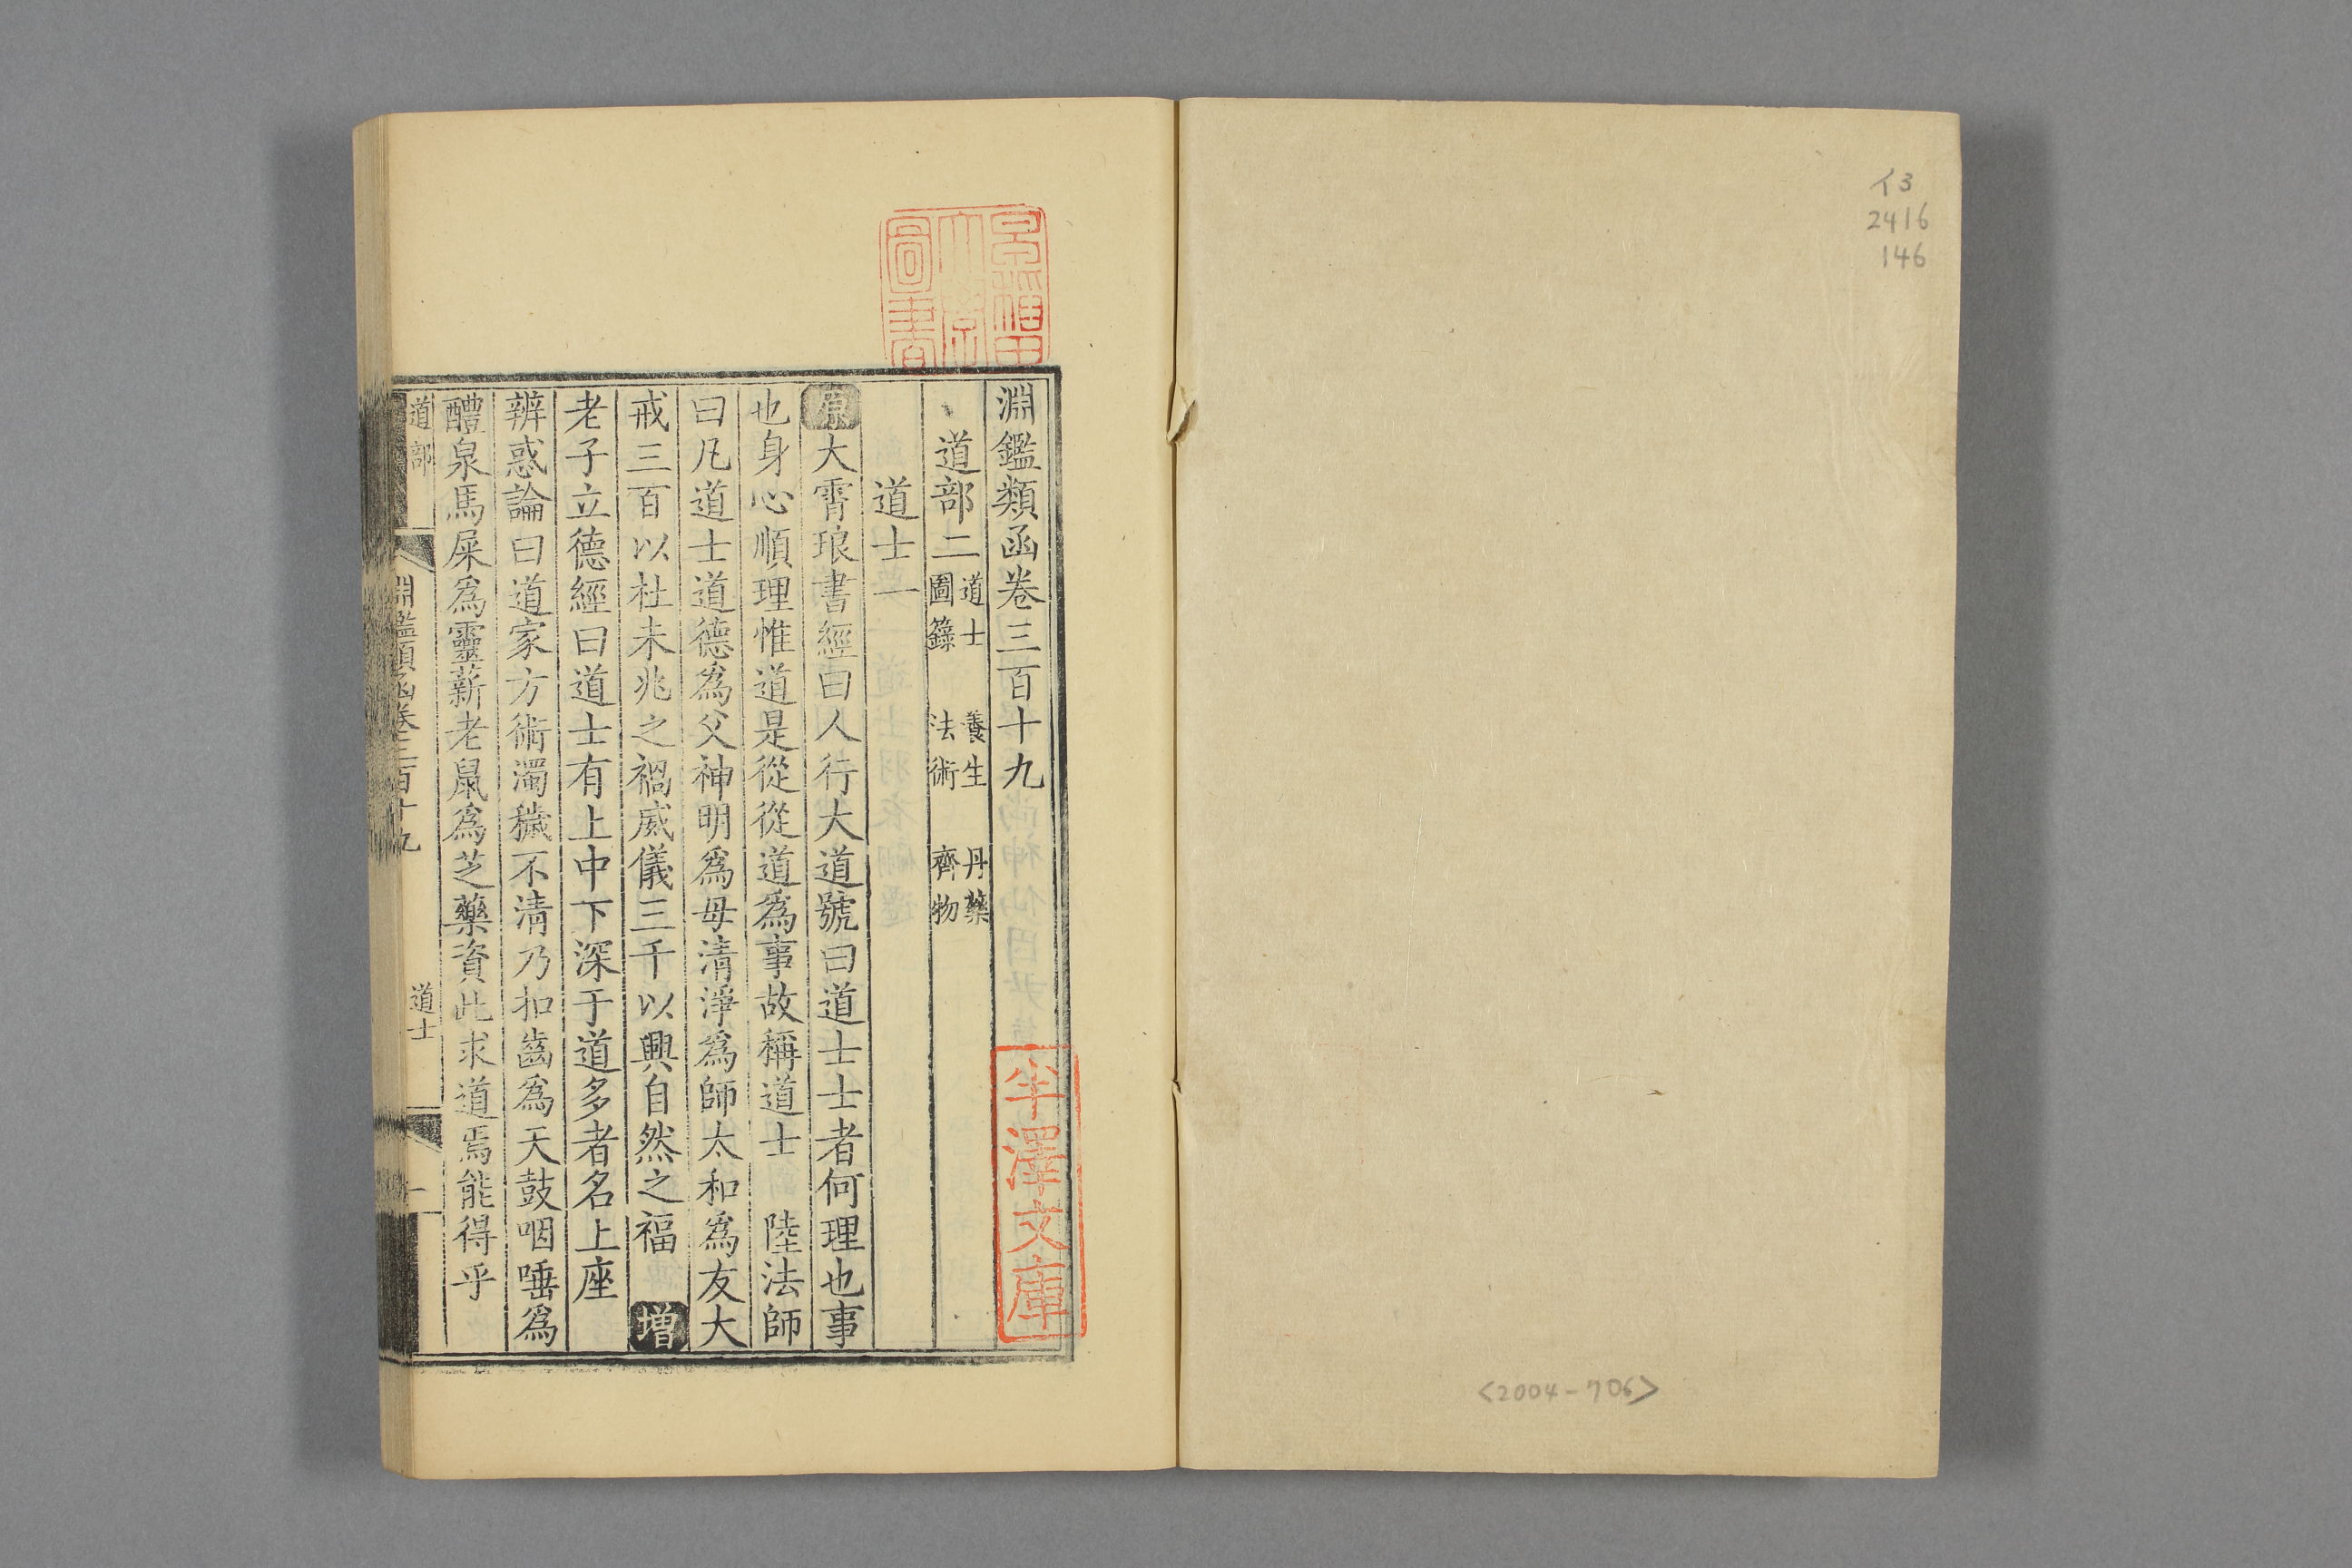 イ3
2416
146
<2004-706>
早稲田
大學
圖書
淵鑑類函卷三百十九
道部二 道士 養生 丹藥
圖籙 法術 齊物
道士一
原大霄琅書經曰人行大道號曰道士士者何理也事
也身心順理惟道是從從道爲事故稱道士 陸法師
曰凡道士道德爲父神明爲母清淨爲師太和爲友大
戒三百以杜未兆之禍威儀三千以興自然之福 增
老子立德經曰道士有上中下深于道多者名上座
辨惑論曰道家方術濁穢不清乃扣齒爲天鼓咽唾爲
醴泉馬屎爲靈薪老鼠爲芝藥資此求道焉能得乎
道部
淵鑑類函卷三百十九
道士
一
半澤文庫